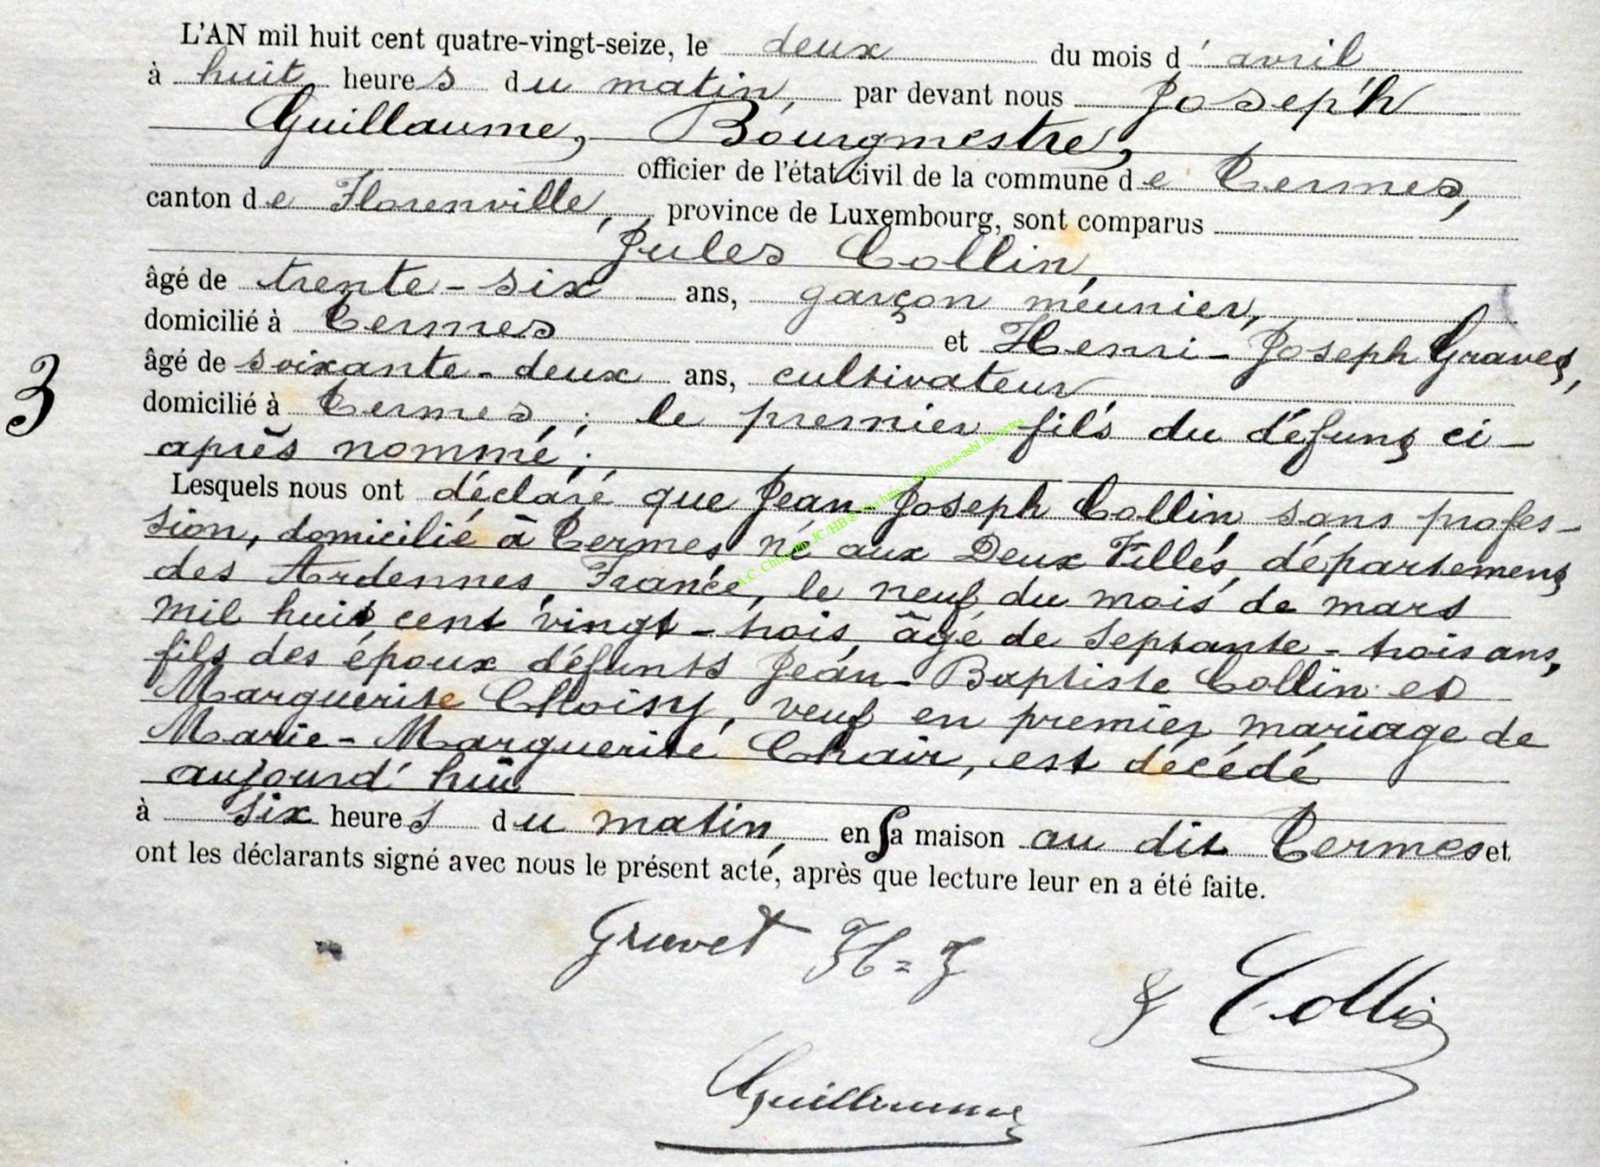 L'AN mil huit cent quatre-vingt-seize, le deux du mois d'avril
à huit heures du matin, par devant nous Joseph
Guillaume, Bourgmestre,
officier de l'état civil de la commune de Termes,
canton de Florenville, province de Luxembourg, sont comparus
Jules Collin,
âgé de trente-six ans, garçon meunier,
domicilié à Termes et Henri-Joseph Gravet,
3
âgé de soixante-deux ans, cultivateur
domicilié à Termes, ; le premier fils du défunt ci-
après nommé ;
Lesquels nous ont déclaré que Jean-Joseph Collin sans profes-
sion, domicilié à Termes né aux Deux Villes, département
des Ardennes, France, le neuf du mois de mars
mil huit cent vingt-trois, âgé de septante-trois ans,
fils des époux défunts Jean-Baptiste Collin et
Marguerite Choisy, veuf en premier mariage de
Marie-Marguerite Chair, est décédé
aujourd'hui
à six heures du matin, en sa maison au dit Termes et
ont les déclarants signé avec nous le présent acte, après que lecture leur en a été faite.
Gravet H=J
J Collin
Guillaume